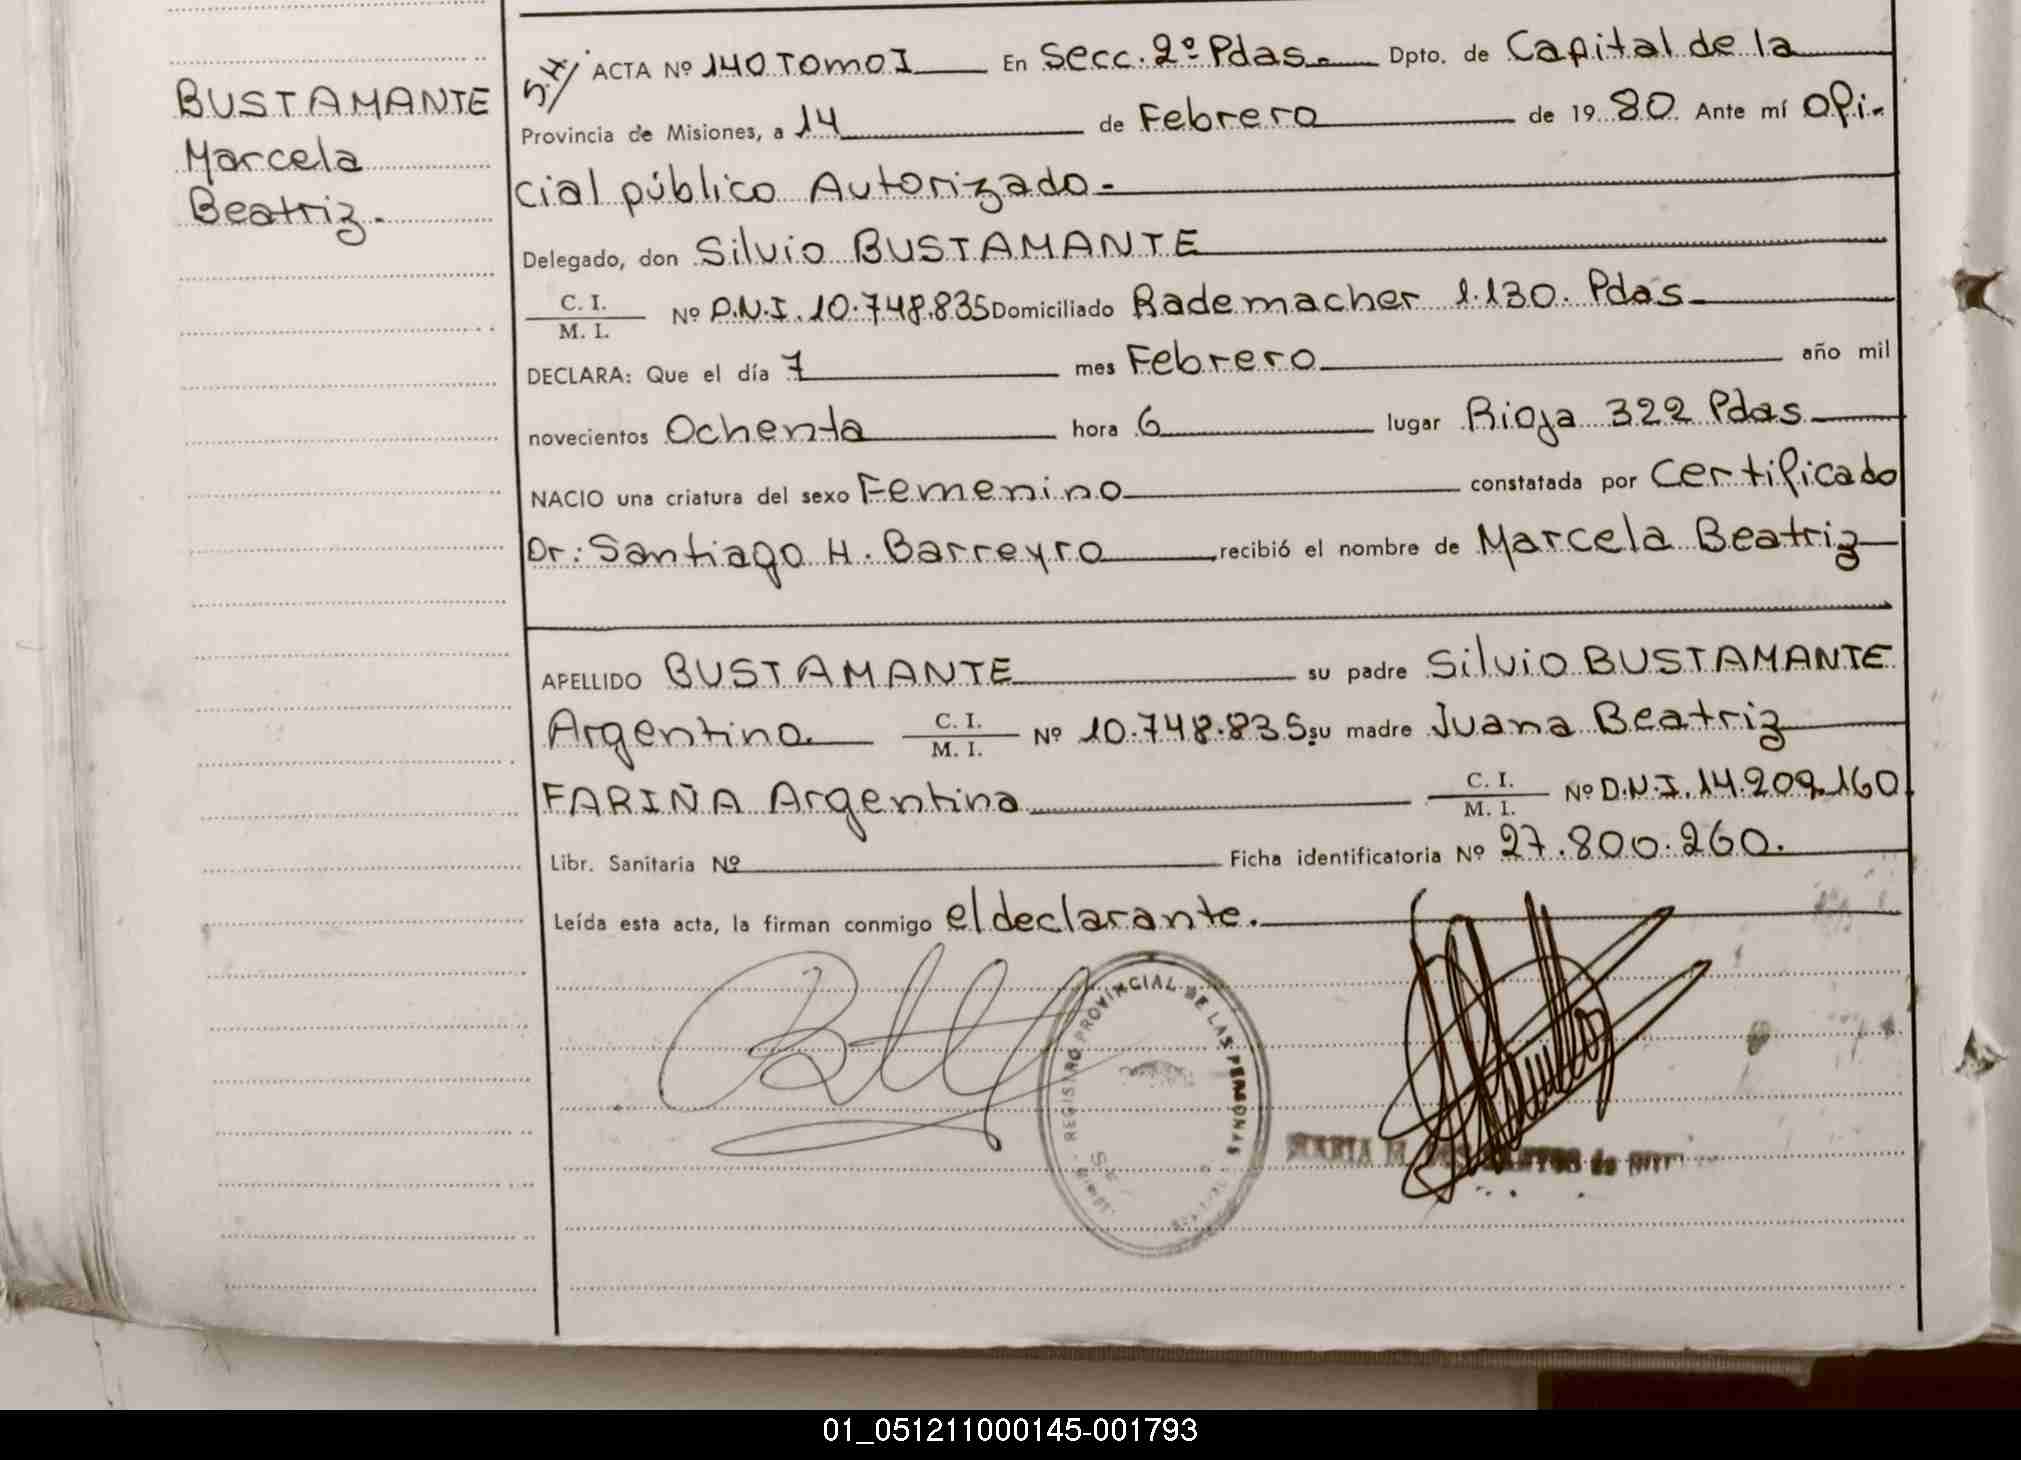 BUSTAMANTE
Marcela
Beatriz.
S.H/ ACTA Nº 140 Tomo I En Secc. 2º Pdas. Dpto. de Capital de la
Provincia de Misiones, a 14 de Febrero de 1980. Ante mí Ofi-
cial público Autorizado.
Delegado, don Silvio BUSTAMANTE
C. I.
M. I. Nº D.N.I. 10.748.835 Domiciliado Rademacher 1.130. Pdas
DECLARA: Que el día 7 mes Febrero año mil
novecientos Ochenta hora 6 lugar Rioja 322 Pdas
NACIO una criatura del sexo Femenino constatada por Certificado
Dr: Santiago H. Barreyro recibió el nombre de Marcela Beatriz
APELLIDO BUSTAMANTE su padre Silvio BUSTAMANTE
Argentino. C. I.
M. I. Nº 10.748.835. su madre Juana Beatriz
FARIÑA Argentina C. I.
M. I. Nº D.N.I. 14.209.160.
Libr. Sanitaria Nº Ficha identificatoria Nº 27.800.260.
Leída esta acta, la firman conmigo el declarante.
REGISTRO PROVINCIAL DE LAS PERSONAS
MARIA
01_051211000145-001793